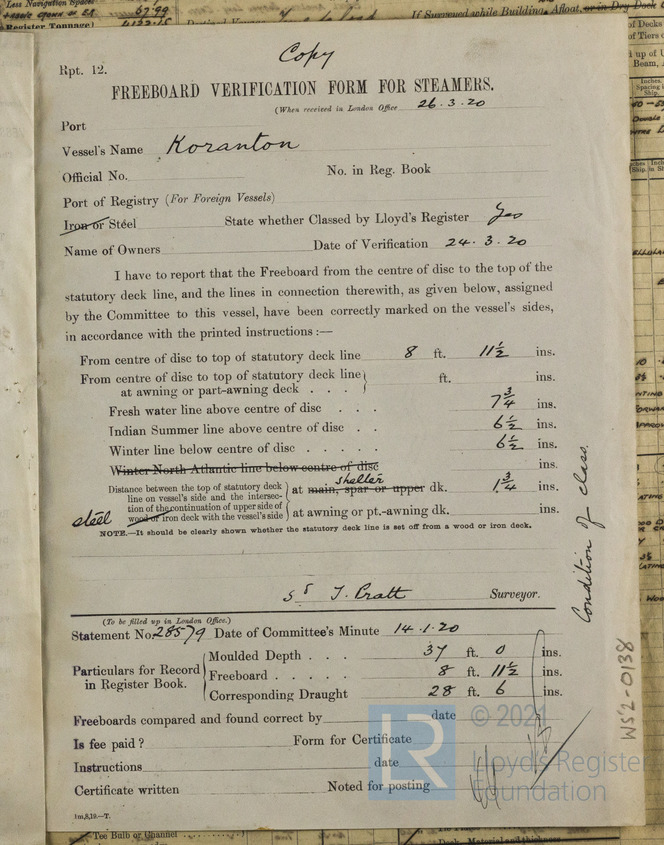 Less Navigation Spaces
67.99
Register Tonnage)
If Surveyed while Building, Afloat, or in Dry Dock
Copy
Rpt. 12.
FREEBOARD VERIFICATION FORM FOR STEAMERS.
(When received in London Office 26.3.20
Port
Vessel's Name Koranton
Official No. No. in Reg. Book
Port of Registry (For Foreign Vessels)
Iron or Steel State whether Classed by Lloyd's Register Yes
Name of Owners Date of Verification 24.3.20
I have to report that the Freeboard from the centre of disc to the top of the
statutory deck line, and the lines in connection therewith, as given below, assigned
by the Committee to this vessel, have been correctly marked on the vessel's sides,
in accordance with the printed instructions :—
From centre of disc to top of statutory deck line 8 ft. 11½ ins.
From centre of disc to top of statutory deck line
at awning or part-awning deck . . . ft. ins.
Fresh water line above centre of disc . . . 7¾ ins.
Indian Summer line above centre of disc . . 6½ ins.
Winter line below centre of disc . . . . . 6½ ins.
Winter North Atlantic line below centre of disc ins.
Distance between the top of statutory deck
line on vessel's side and the intersec-
tion of the continuation of upper side of
steel wood or iron deck with the vessel's side
shelter
at main, spar or upper dk. 1¾ ins.
at awning or pt.-awning dk. ins.
NOTE.—It should be clearly shown whether the statutory deck line is set off from a wood or iron deck.
Sd J. Pratt Surveyor.
Condition of class.
(To be filled up in London Office.)
Statement No. 28579 Date of Committee's Minute 14.1.20
Particulars for Record
in Register Book.
Moulded Depth . . . 37 ft. 0 ins.
Freeboard . . . . . 8 ft. 11½ ins.
Corresponding Draught 28 ft. 6 ins.
Freeboards compared and found correct by date
Is fee paid ? Form for Certificate
Instructions date
Certificate written Noted for posting
1m,8,19.—T.
WS2-0138
© 2021
LR
Lloyd's Register
Foundation
Tee Bulb or Channel